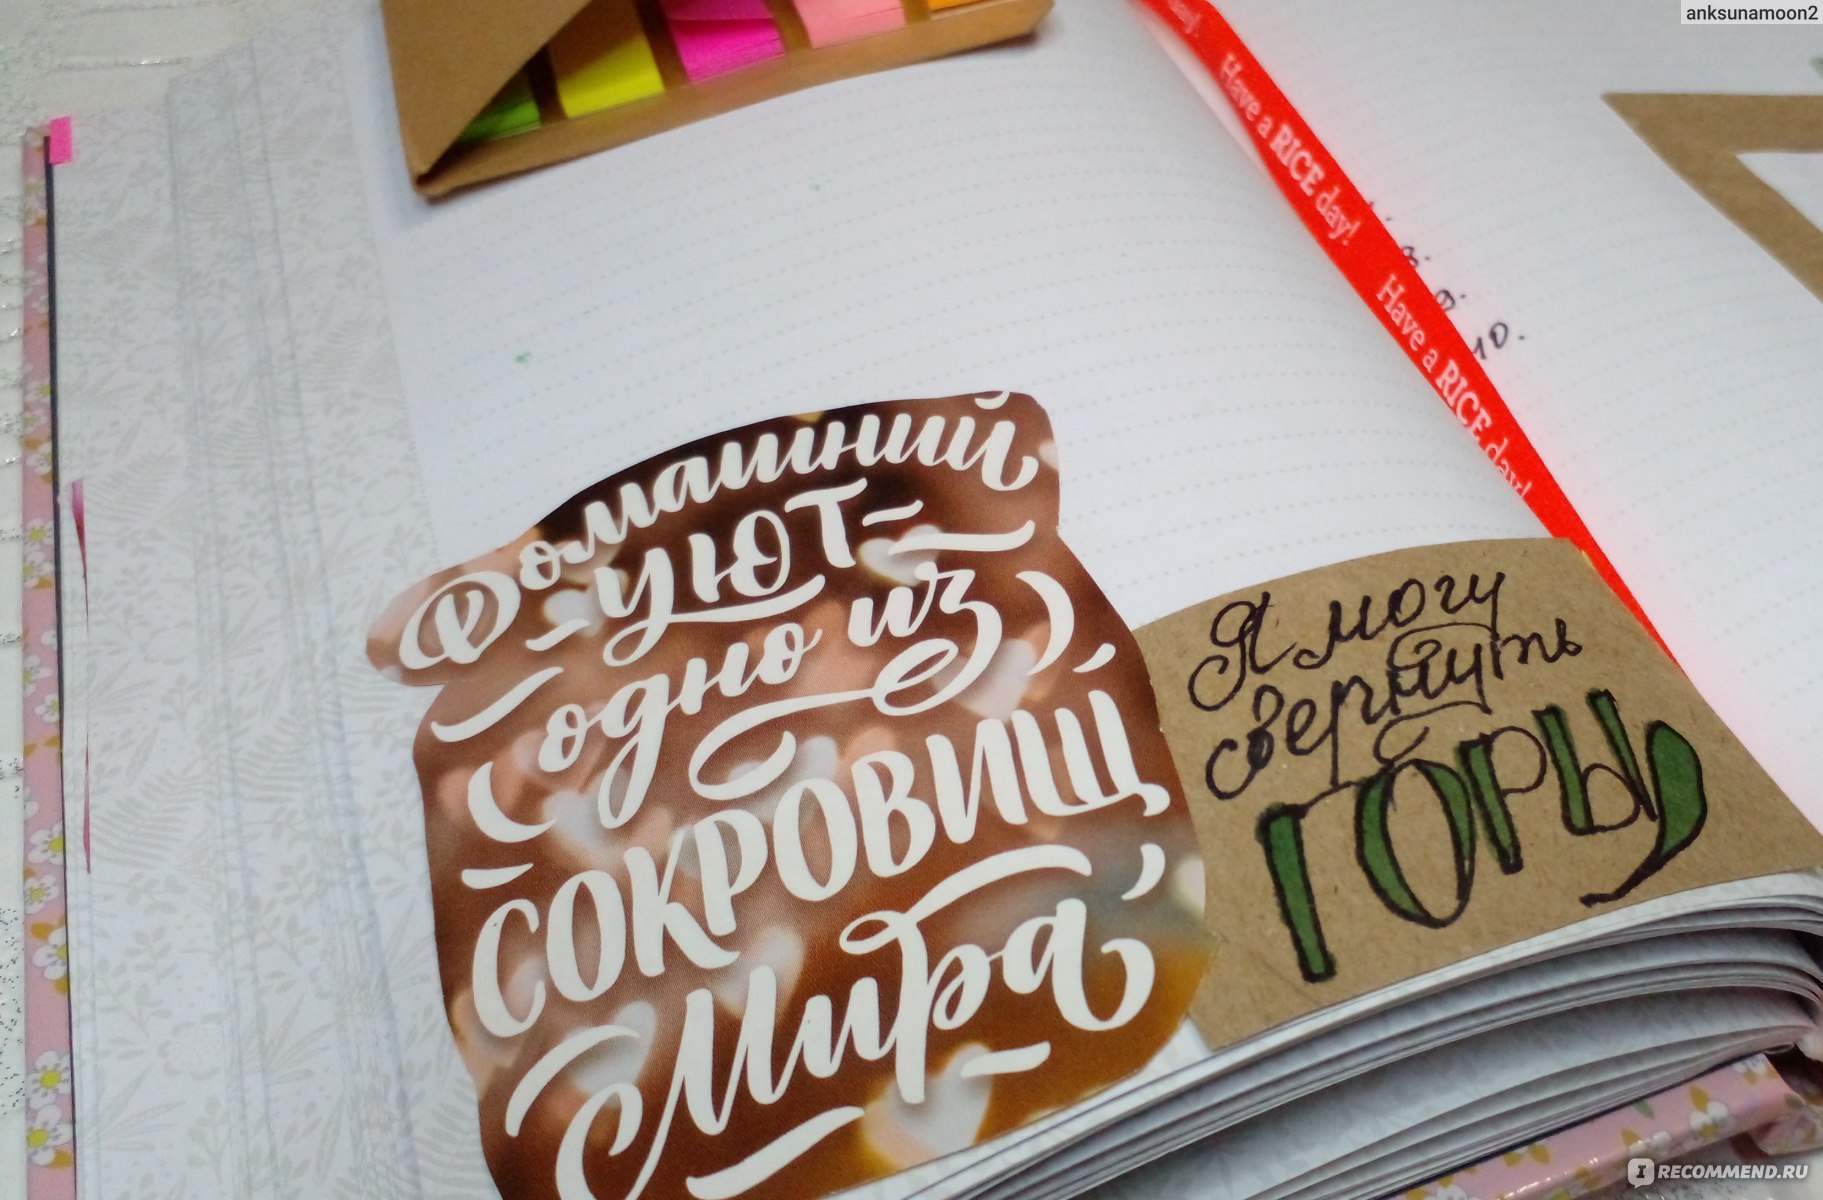 anksunamoon2
Have a RICE day!
Have a RICE day!
Домашний
УЮТ
одно из
СОКРОВИЩ
Мира
Я могу
свернуть
ГОРЫ
RECOMMEND.RU